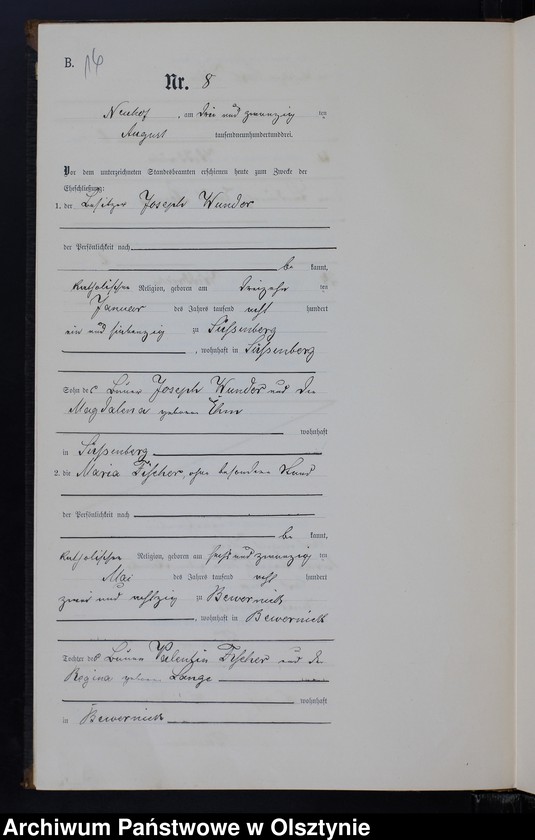 B. 14
Nr. 8
Neuhof, am drei und zwanzig ten
August tausendneunhundertunddrei.
Vor dem unterzeichneten Standesbeamten erschienen heute zum Zwecke der
Eheschließung:
1. der Besitzer Joseph Wunder
der Persönlichkeit nach
be kannt,
katholischer Religion, geboren am dreizehn ten
Januar des Jahres tausend acht hundert
ein und siebenzig zu Süssenberg
, wohnhaft in Süssenberg
Sohn des Bauer Joseph Wunder und der
Magdalena geborene Ehm
wohnhaft
in Süssenberg
2. die Maria Fischer, ohne besonderen Stand
der Persönlichkeit nach
be kannt,
katholischer Religion, geboren am sechs und zwanzig ten
Mai des Jahres tausend acht hundert
zwei und achtzig zu Bewernick
, wohnhaft in Bewernick
Tochter des Bauer Valentin Fischer und der
Regina geborene Lange
wohnhaft
in Bewernick
Archiwum Państwowe w Olsztynie